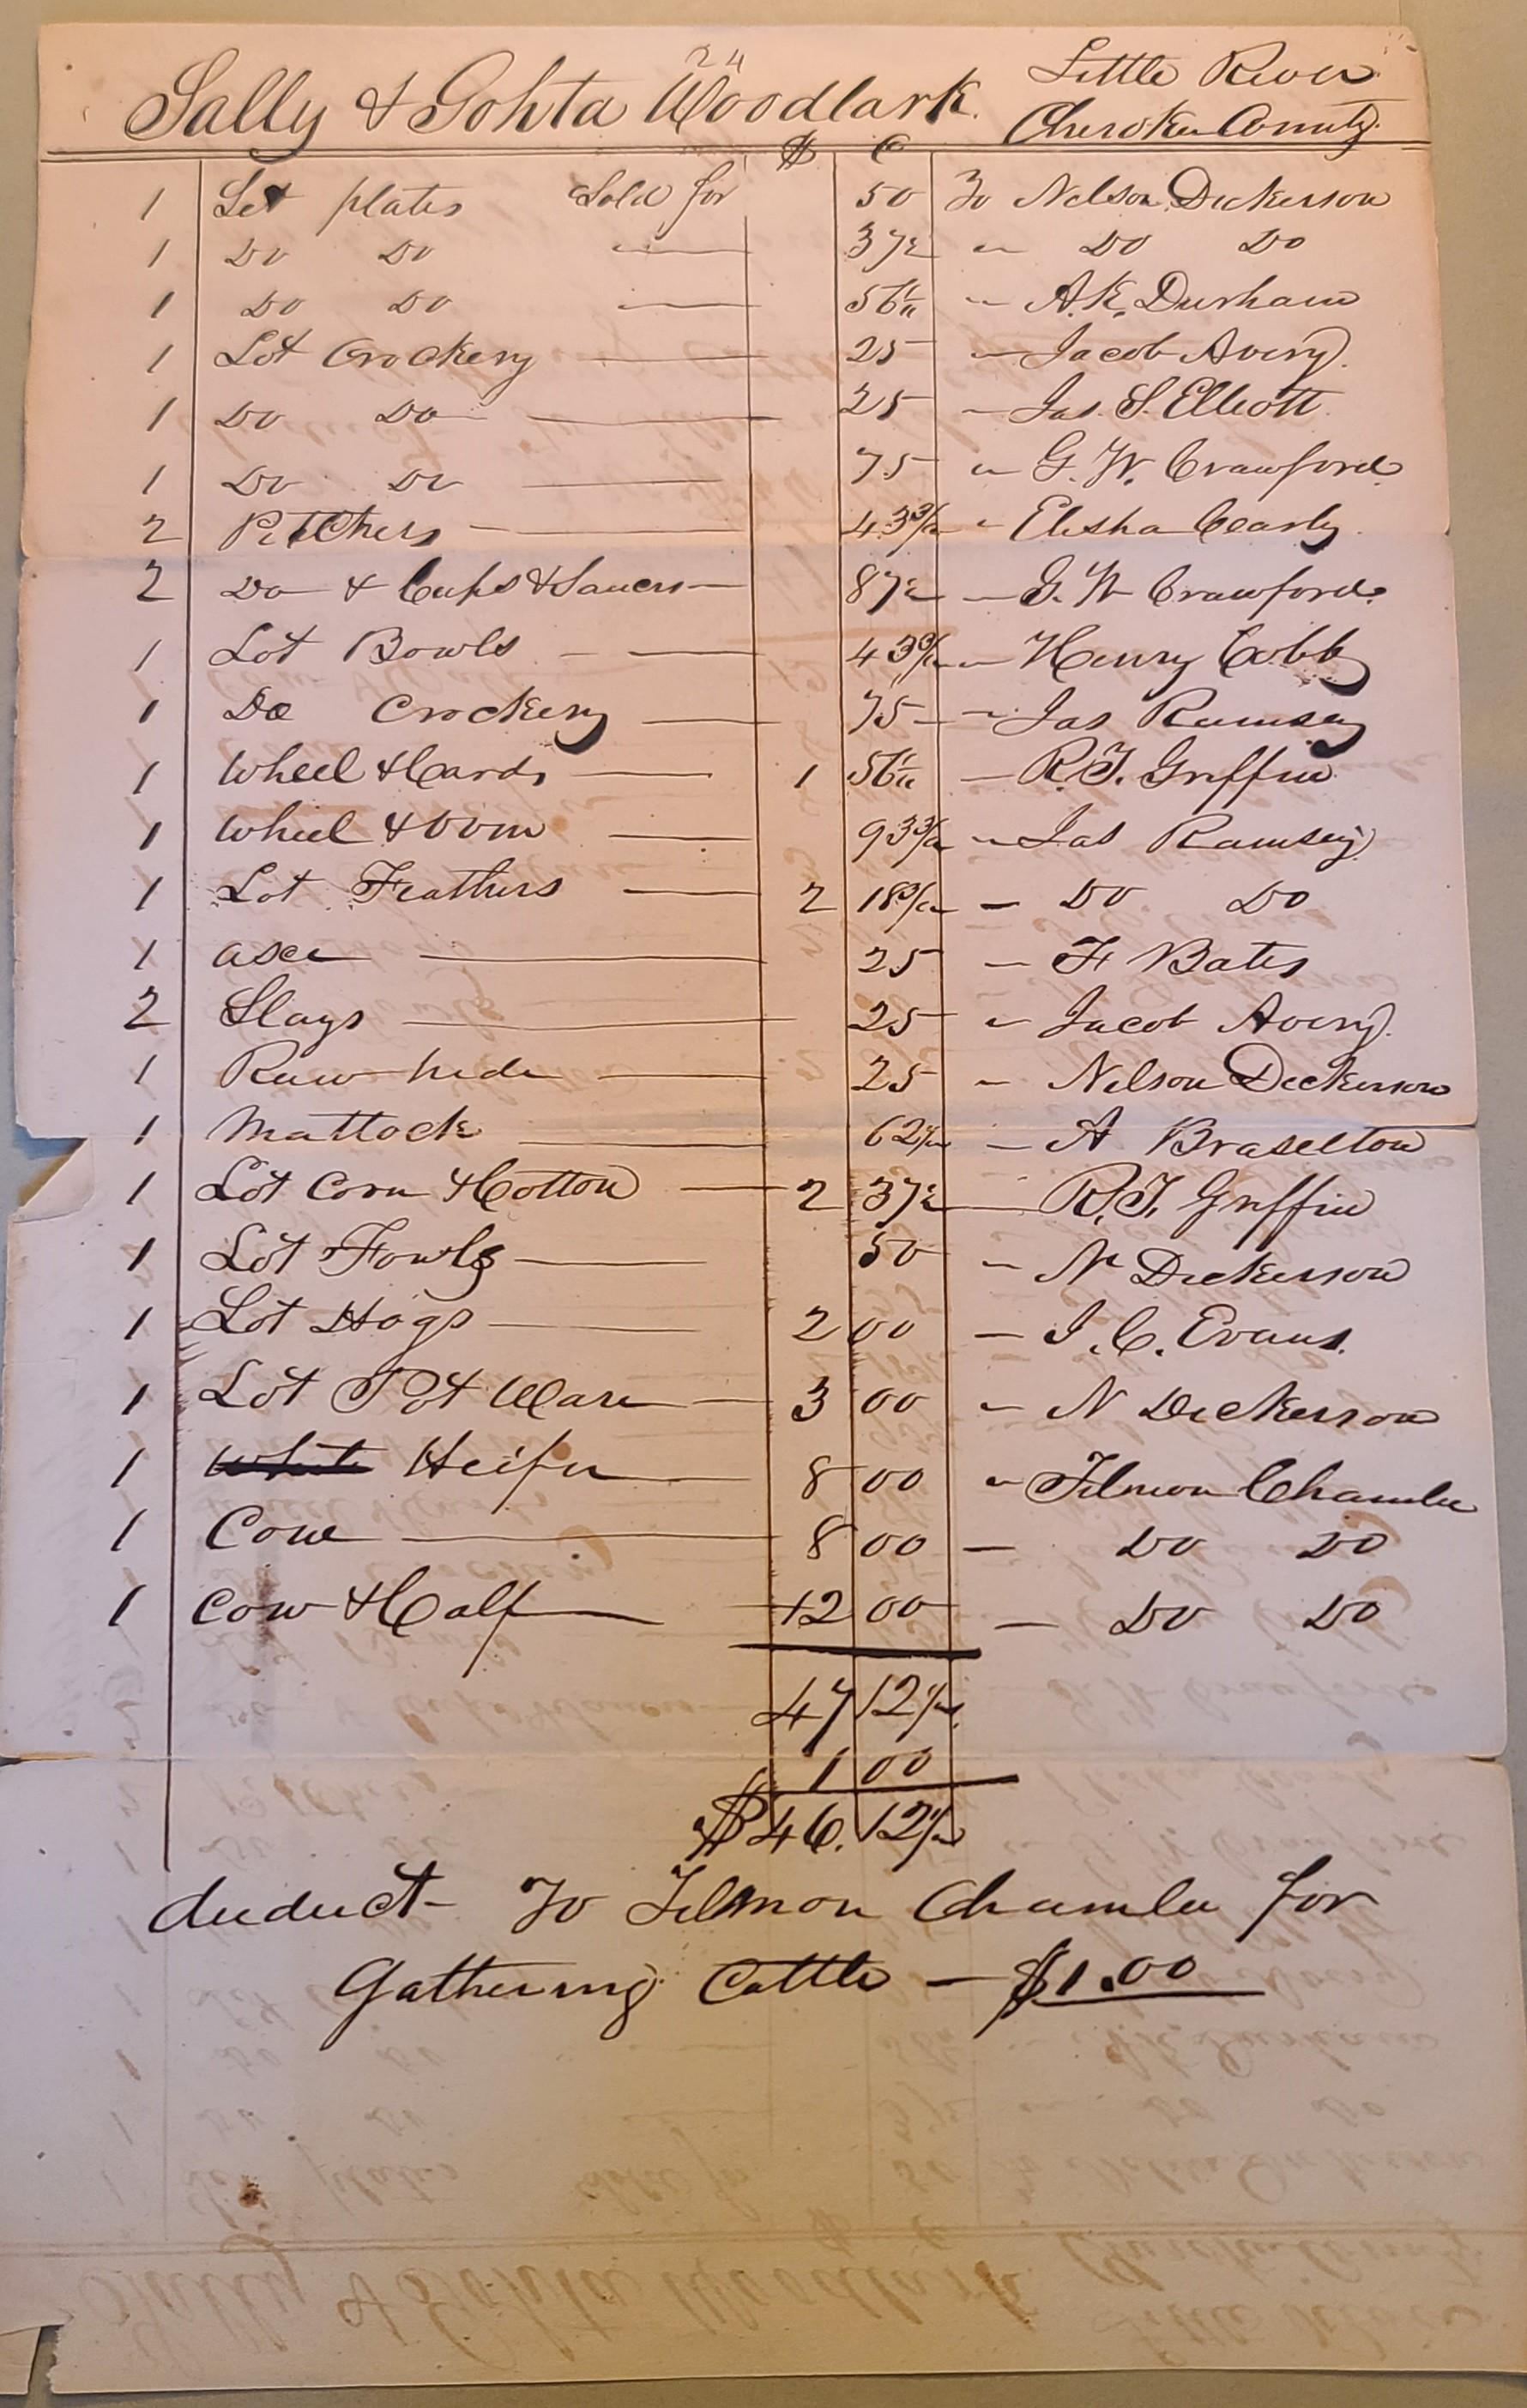 24
Sally & Gohta Woodlark. Little River
Cherokee County.
$ C
1 Set plates Sold for 50 To Nelson Dickerson
1 Do Do — 37½ " Do Do
1 Do Do — 56¼ " A.K. Durham
1 Lot Crockery — 25 " Jacob Avery.
1 Do Do — 25 " Jas. S. Elliott
1 Do Do — 75 " G. W. Crawford
2 Pitchers — 43¾ " Elisha
2 Do & Cups & Saucers — 87½ — G. W Crawford
1 Lot Bowls — 43¾ " Henry Cobb
1 Do Crockery — 75 " Jas Ramsey
1 Wheel & Cards — 1 56¼ — R. F. Griffin
1 Wheel & Loom — 93¾ " Jas Ramsey
1 Lot Feathers — 2 18¾ — Do Do
1 axe — 25 — F Bates
2 Slays — 25 " Jacob Avery.
1 Raw hide — 25 " Nelson Dickerson
1 Mattock — 62½ — A Braselton
1 Lot Corn & Cotton — 2 37½ — R. F. Griffin
1 Lot Fowls — 50 " N Dickerson
1 Lot Hogs — 2 00 — J. C. Evans.
1 Lot Pot Ware — 3 00 " N Dickerson
1 White Heifer — 8 00 " Tilmon Chamlee
1 Cow — 8 00 — Do Do
1 Cow & Calf — 12 00 — Do Do
47 12½
1 00
$46. 12½
deduct To Tilmon Chamlee for
Gathering Cattle — $1.00